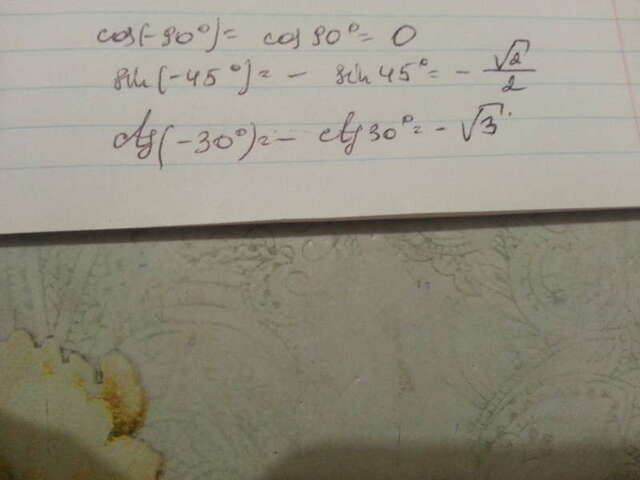 cos(-90°)= cos 90°= 0
sin(-45°)= - sin 45°= - √2/2
ctg(-30°)= - ctg 30°= - √3.